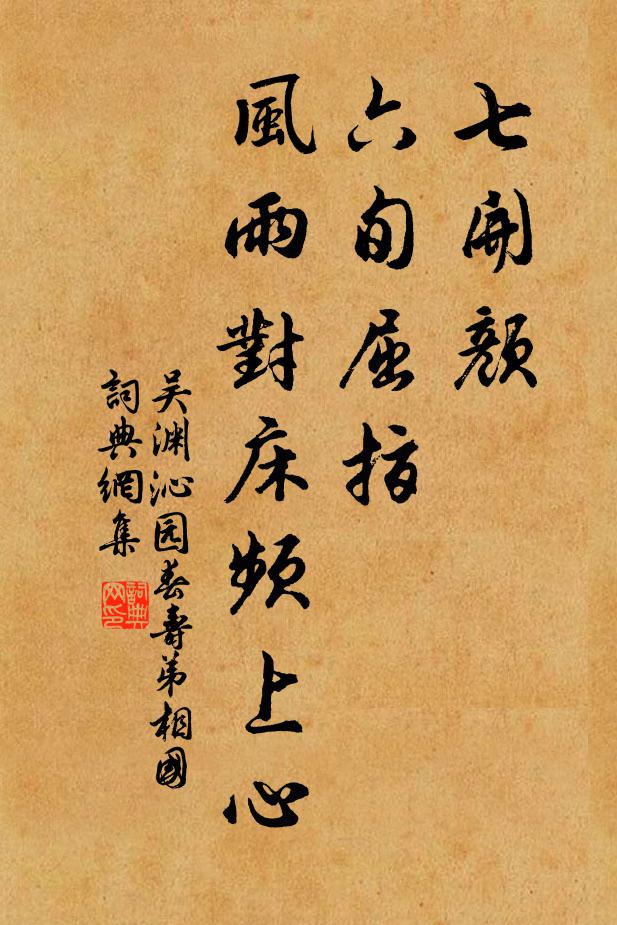 七開顏
六旬屈指
風雨對床頻上心
吴渊沁园春壽弟相國
詞典網集
詞典
网印